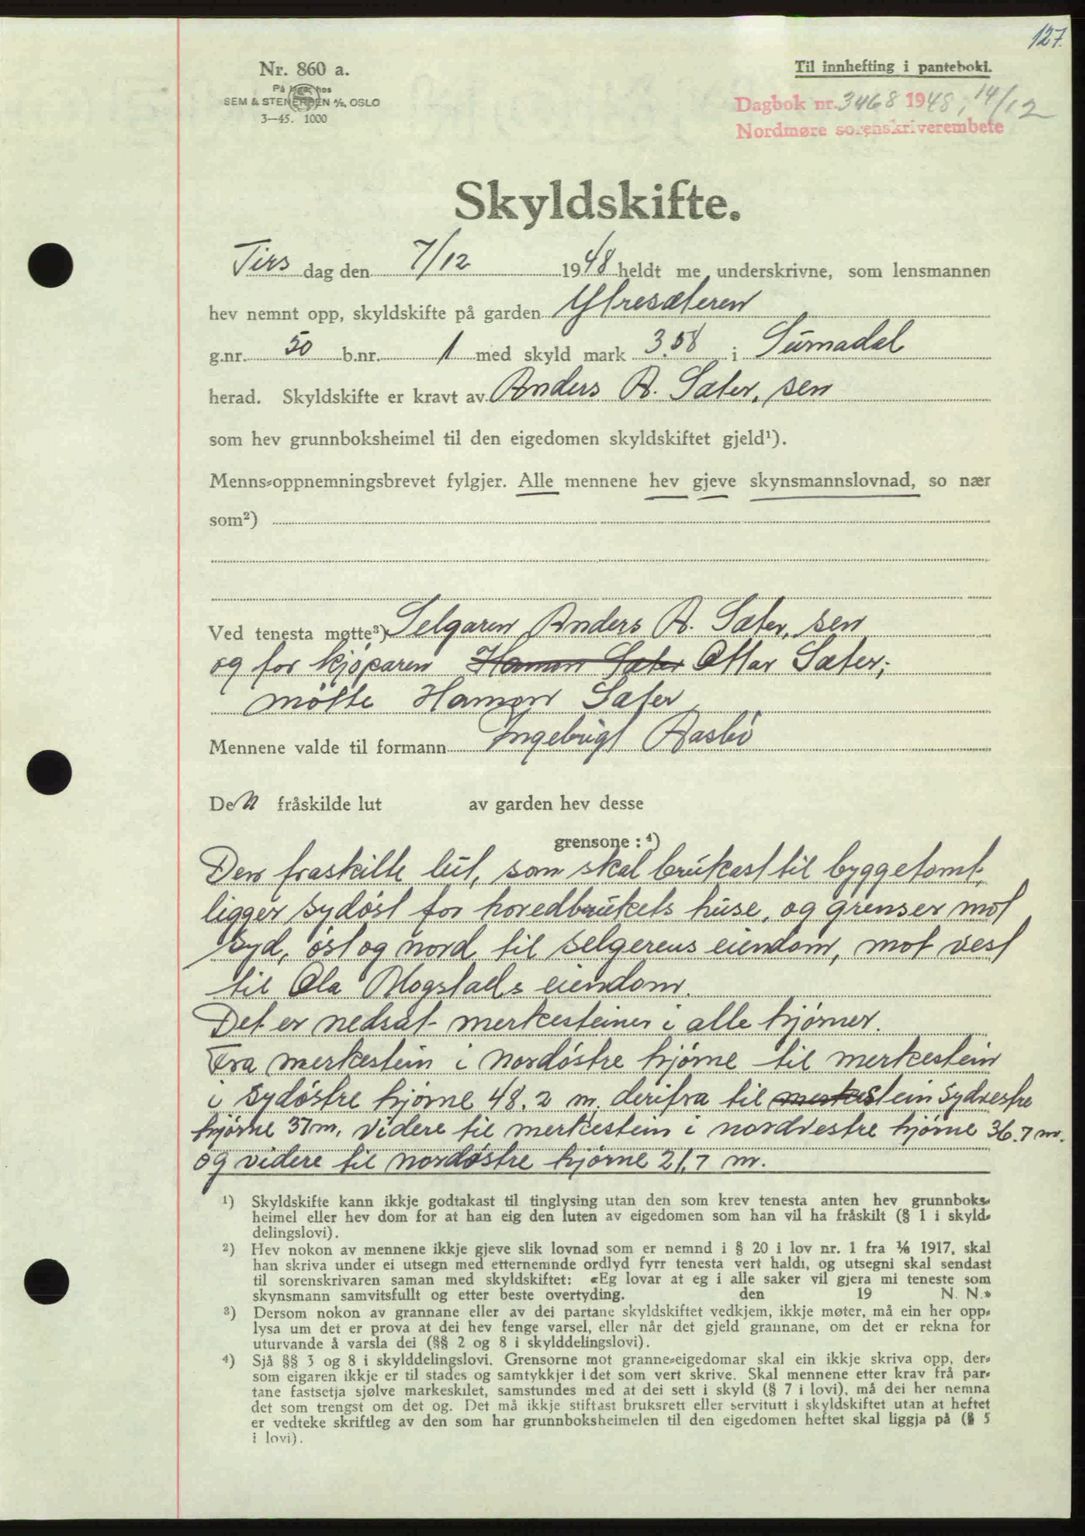 127.
Nr. 860 a.
På lager hos
SEM & STENERSEN A/S, OSLO
3—45. 1000
Til innhefting i panteboki.
Dagbok nr. 3468 1948, 14/12
Nordmøre sorenskriverembete
Skyldskifte.
Tirs dag den 7/12 1948 heldt me underskrivne, som lensmannen
hev nemnt opp, skyldskifte på garden Ytresæteren
g.nr. 50 b.nr. 1 med skyld mark 3.58 i Surnadal
herad. Skyldskifte er kravt av Anders A. Sæter, sen
som hev grunnboksheimel til den eigedomen skyldskiftet gjeld¹).
Menns-oppnemningsbrevet fylgjer. Alle mennene hev gjeve skynsmannslovnad, so nær
som²)
Ved tenesta møtte³) Selgaren Anders A. Sæter, sen
og for kjøparen Hamon Sæter Ottar Sæter;
møtte Hamon Sæter
Mennene valde til formann Ingebrigt Aasbö
Den fråskilde lut av garden hev desse
grensone :⁴)
Den fraskilte lut, som skal brukast til byggetomt,
ligger sydøst for hovedbrukets huse, og grenser mot
syd, øst og nord til selgerens eiendom, mot vest
til Ola Mogstads eiendom.
Det er nedsat merkesteiner i alle hjørner.
Fra merkestein i nordöstre hjørne til merkestein
i sydöstre hjørne 48.2 m. derifra til merkestein sydvestre
hjørne 37 m. videre til merkestein i nordvestre hjørne 36.7 m.
og videre til nordøstre hjørne 21,7 m.
¹) Skyldskifte kann ikkje godtakast til tinglysing utan den som krev tenesta anten hev grunnboks-
heimel eller hev dom for at han eig den luten av eigedomen som han vil ha fråskilt (§ 1 i skyld-
delingslovi).
²) Hev nokon av mennene ikkje gjeve slik lovnad som er nemnd i § 20 i lov nr. 1 fra 1/6 1917, skal
han skriva under ei utsegn med etternemnde ordlyd fyrr tenesta vert haldi, og utsegni skal sendast
til sorenskrivaren saman med skyldskiftet: «Eg lovar at eg i alle saker vil gjera mi teneste som
skynsmann samvitsfullt og etter beste overtyding. den 19 N. N.»
³) Dersom nokon av grannane eller av dei partane skyldskiftet vedkjem, ikkje møter, må ein her opp-
lysa um det er prova at dei hev fenge varsel, eller når det gjeld grannane, om det er rekna for
uturvande å varsla dei (§§ 2 og 8 i skylddelingslovi).
⁴) Sjå §§ 3 og 8 i skylddelingslovi. Grensorne mot granne-eigedomar skal ein ikkje skriva opp, der-
som eigaren ikkje er til stades og samtykkjer i det som vert skrive. Skal mennene etter krav frå par-
tane fastsetja sjølve markeskilet, samstundes med at dei sett i skyld (§ 7 i lovi), må dei her nemna
det som trengst om det og. Det må ikkje stiftast bruksrett eller servitutt i skyldskiftet utan at heftet
er vedteke skriftleg av den som har grunnboksheimelen til den eigedomen heftet skal liggja på (§ 5
i lovi).